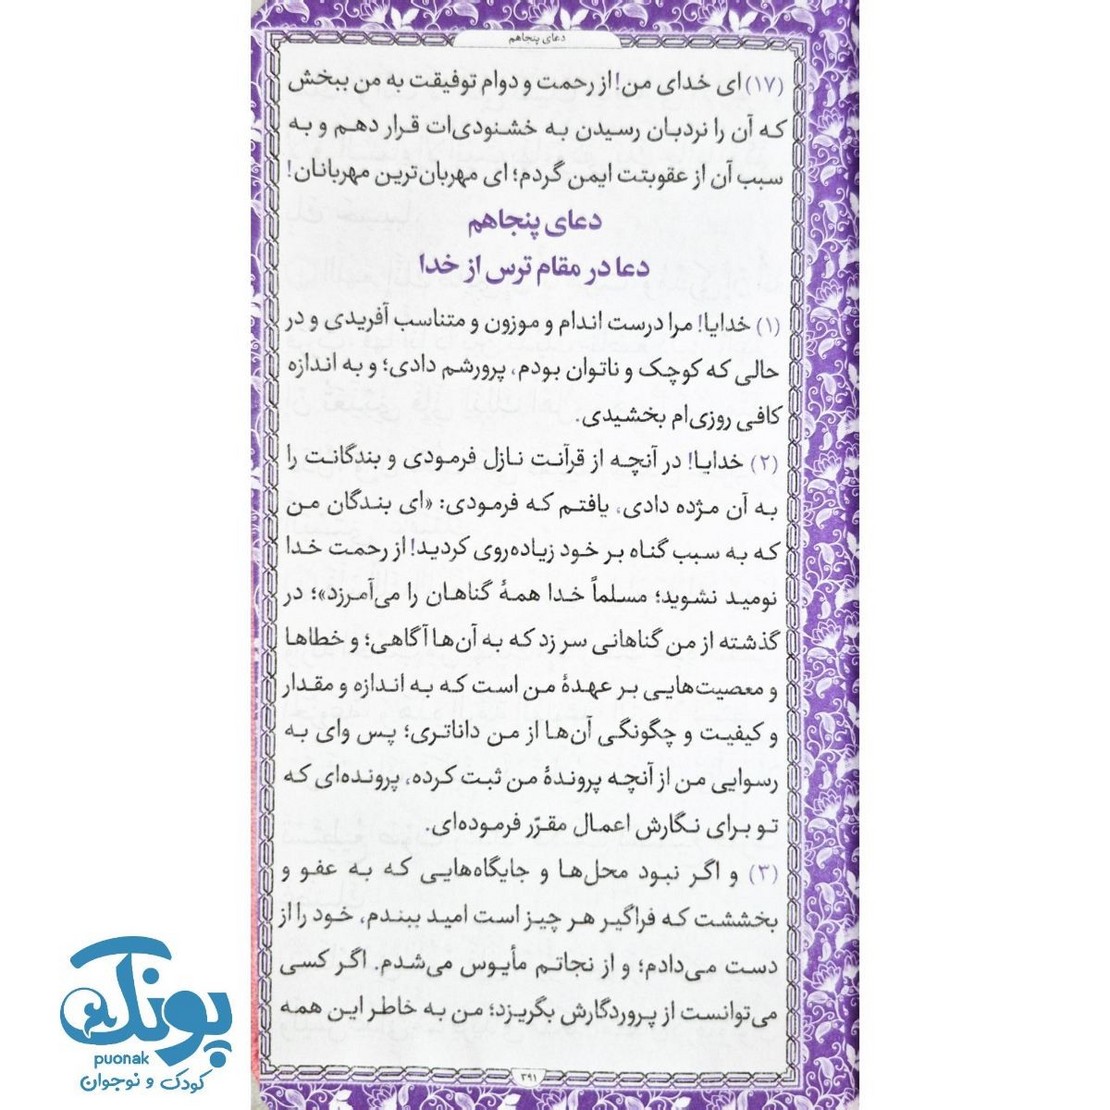 دعای پنجاهم
(۱۷) ای خدای من! از رحمت و دوام توفیقت به من ببخش
که آن را نردبان رسیدن به خشنودی‌ات قرار دهم و به
سبب آن از عقوبتت ایمن گردم؛ ای مهربان‌ترین مهربانان!
دعای پنجاهم
دعا در مقام ترس از خدا
(۱) خدایا! مرا درست اندام و موزون و متناسب آفریدی و در
حالی که کوچک و ناتوان بودم، پرورشم دادی؛ و به اندازه
کافی روزی‌ام بخشیدی.
(۲) خدایا! در آنچه از قرآنت نازل فرمودی و بندگانت را
به آن مژده دادی، یافتم که فرمودی: «ای بندگان من
که به سبب گناه بر خود زیاده‌روی کردید! از رحمت خدا
نومید نشوید؛ مسلماً خدا همهٔ گناهان را می‌آمرزد»؛ در
گذشته از من گناهانی سر زد که به آن‌ها آگاهی؛ و خطاها
و معصیت‌هایی بر عهدهٔ من است که به اندازه و مقدار
و کیفیت و چگونگی آن‌ها از من داناتری؛ پس وای به
رسوایی من از آنچه پروندهٔ من ثبت کرده، پرونده‌ای که
تو برای نگارش اعمال مقرّر فرموده‌ای.
(۳) و اگر نبود محل‌ها و جایگاه‌هایی که به عفو و
بخششت که فراگیر هر چیز است امید ببندم، خود را از
دست می‌دادم؛ و از نجاتم مأیوس می‌شدم. اگر کسی
می‌توانست از پروردگارش بگریزد؛ من به خاطر این همه
۳۹۱
پونک
puonak
کودک و نوجوان